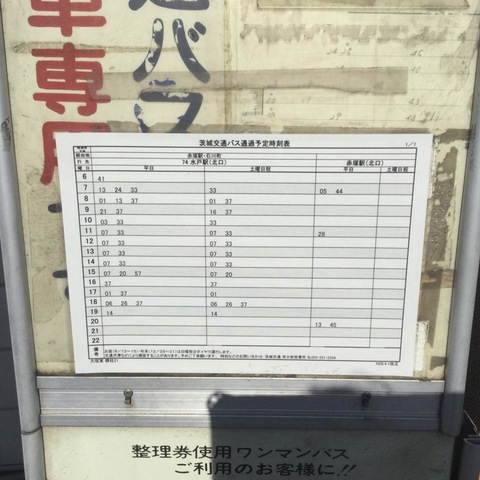 車専用
バス
茨城交通バス通過予定時刻表 1/1
経由地 赤塚駅・石川町
行先 74 水戸駅(北口) 赤塚駅(北口)
曜日 平日 土曜日祝 平日 土曜日祝
6 41
7 13 24 33 33 05 44
8 01 13 37 01 37
9 21 37 16 37
10 03 33 33
11 07 33 07 33 28
12 07 33 07 33
13 07 33 07 33
14 07 33 07 33
15 07 20 57 07 20
16 37 37
17 01 37 01
18 06 26 37 06 26 37
19 14 14
20 13 45
21
22
備考
整理券使用ワンマンバス
ご利用のお客様に!!